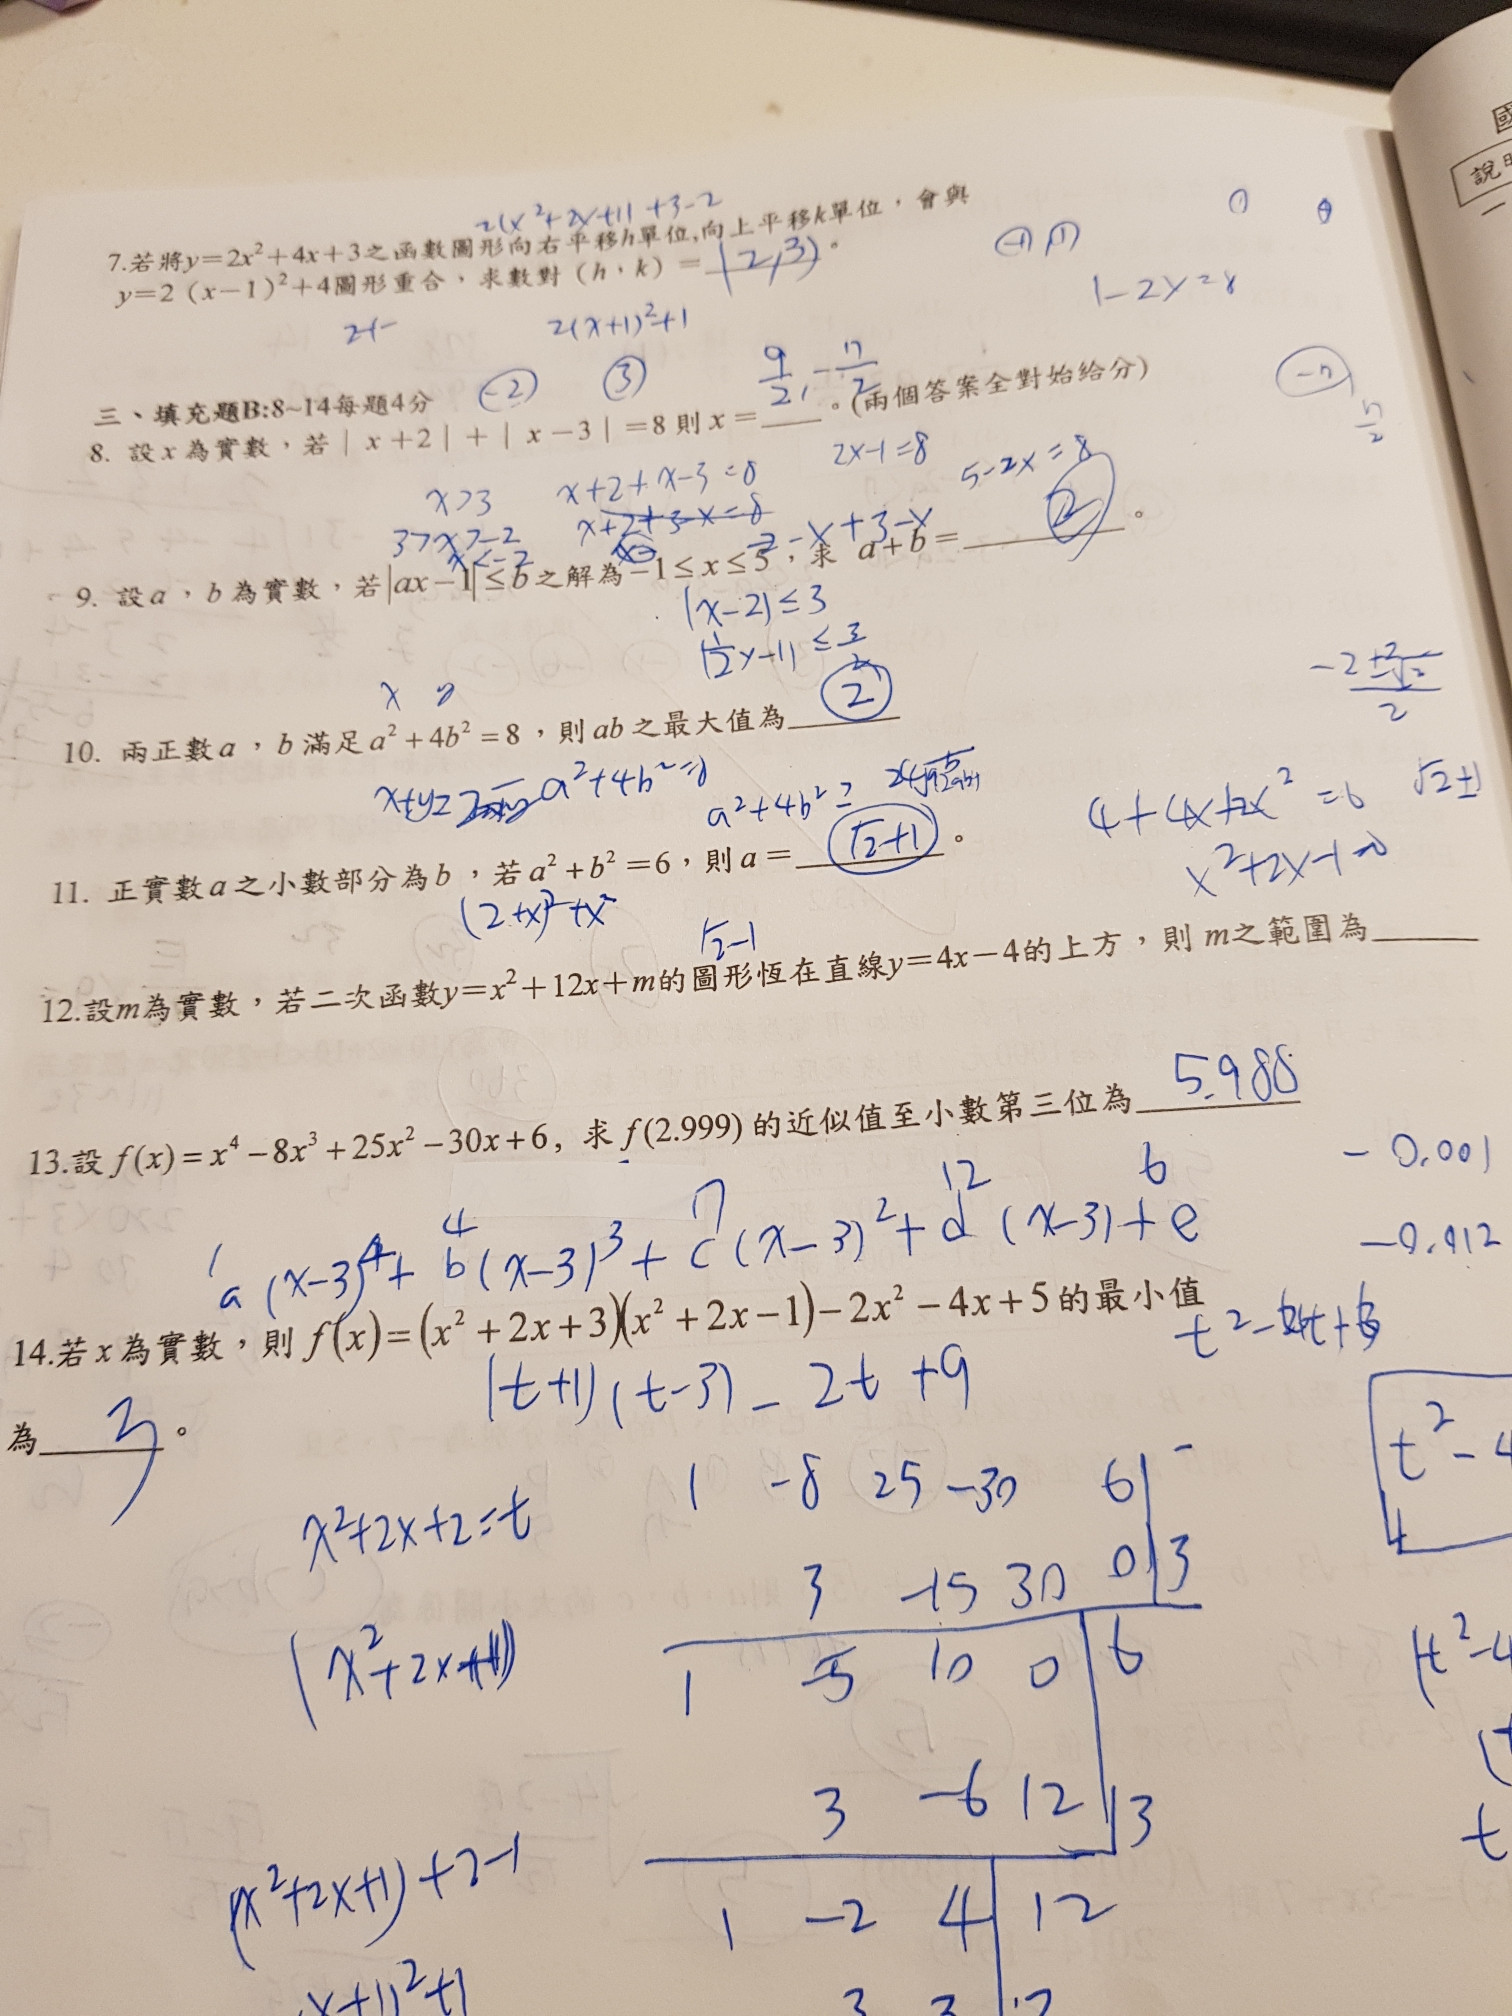 2(x²+2x+1)+3-2
7.若將y=2x²+4x+3之函數圖形向右平移h單位,向上平移k單位,會與
y=2(x-1)²+4圖形重合,求數對(h,k)=(2,3)。
2(x+1)²+1
1-2x=8
-2
3
9/2, -7/2
三、填充題B:8~14每題4分
8. 設x為實數,若|x+2|+|x-3|=8則x=____。(兩個答案全對始給分)
2x-1=8
5-2x=8
x>3
x+2+x-3=8
3>x>-2
x+2+3-x=8
x<-2
-2-x+3-x
9. 設a,b為實數,若|ax-1|≤b之解為-1≤x≤5,求 a+b=____。
2
|x-2|≤3
|1/2x-1|≤3/2
10. 兩正數a,b滿足a²+4b²=8,則ab之最大值為____
2
a²+4b²=8
a²+4b²≥
4+4x+2x²=6
√2+1
x²+2x-1=0
11. 正實數a之小數部分為b,若a²+b²=6,則a=____。
√2+1
(2+x)²+x²
√2-1
12.設m為實數,若二次函數y=x²+12x+m的圖形恆在直線y=4x-4的上方,則 m之範圍為____
13.設f(x)=x⁴-8x³+25x²-30x+6, 求f(2.999)的近似值至小數第三位為5.988
-0.001
1 4 7 12 6
a(x-3)⁴+b(x-3)³+c(x-3)²+d(x-3)+e
14.若x為實數,則f(x)=(x²+2x+3)(x²+2x-1)-2x²-4x+5的最小值
(t+1)(t-3)-2t+9
為3。
x²+2x+2=t
1 -8 25 -30 6
3 -15 30 0 3
1 -5 10 0 6
3 -6 12 3
(x²+2x+1)+2-1
1 -2 4 12
國
說明
一